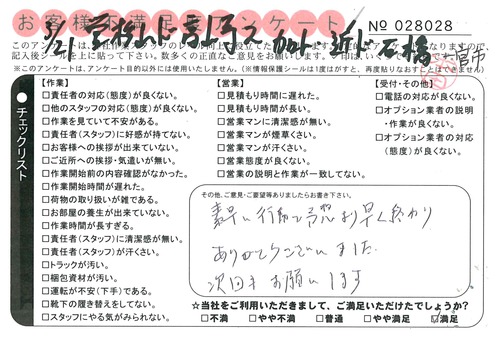 お客様満足度アンケート
№ 028028
5/21
このアンケートは、
記入後シールを上に貼って下さい。数多くの正直なご意見をお願いします。
※このアンケートは、アンケート目的以外には使用いたしません。(※情報保護シールは1度はがすと、再度貼りなおすことはできません)
チェックリスト
【作業】
□責任者の対応(態度)が良くない。
□他のスタッフの対応(態度)が良くない。
□作業を見ていて不安がある。
□責任者(スタッフ)に好感が持てない。
□お客様への挨拶が出来ていない。
□ご近所への挨拶・気遣いが無い。
□作業開始前の内容確認がなかった。
□作業開始時間が遅れた。
□荷物の取り扱いが雑である。
□お部屋の養生が出来ていない。
□作業時間が長すぎる。
□責任者(スタッフ)に清潔感が無い。
□責任者(スタッフ)が汗くさい。
□トラックが汚い。
□梱包資材が汚い。
□運転が不安(下手)である。
□靴下の履き替えをしてない。
□スタッフにやる気がみられない。
【営業】
□見積もり時間に遅れた。
□見積もり時間が長い。
□営業マンに清潔感が無い。
□営業マンが煙草くさい。
□営業マンが汗くさい。
□営業態度が良くない。
□営業の説明と作業が一致してない。
【受付・その他】
□電話の対応が良くない。
□オプション業者の説明
・作業が良くない。
□オプション業者の対応
(態度)が良くない。
その他、ご意見・ご要望等ありましたらお書き下さい。
素早い行動で予想より早く終わり
ありがとうございました
次回もお願いします
☆当社をご利用いただきまして、ご満足いただけたでしょうか?
□不満 □やや不満 □普通 □やや満足 ☑満足